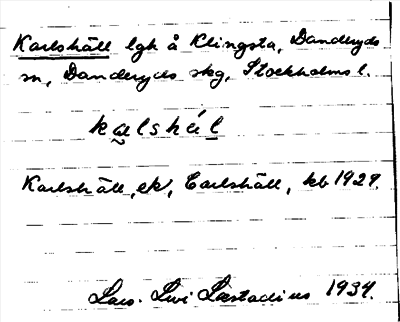 Karlshäll lgh å Klingsta, Danderyds
sn, Danderyds skg, Stockholms l.
kalshäl
Karlshäll, ek, Carlshäll, kb 1927.
Lars-Levi Læstadius 1934.